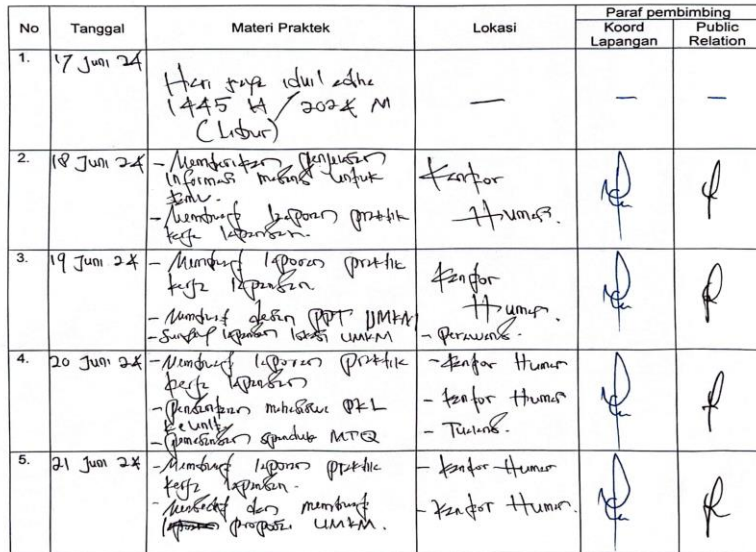 No Tanggal Materi Praktek Lokasi Paraf pembimbing
Koord Lapangan Public Relation
1. 17 Juni 24 Hari raya idul adha
1445 H / 2024 M
(Libur)
— — —
2. 18 Juni 24 - Memberikan penjelasan
informasi magang untuk
tamu.
- Membuat laporan praktik
kerja lapangan.
Kantor
Humas.
3. 19 Juni 24 - Membuat laporan praktik
kerja lapangan
- Membuat desain PPT UMKM
- Survey lapangan lokasi UMKM
Kantor
Humas.
- Perawang.
4. 20 Juni 24 - Membuat laporan praktik
kerja lapangan
- mahasiswa PKL
ke unit
- Pemasangan spanduk MTQ
- Kantor Humas
- Kantor Humas
- Tualang.
5. 21 Juni 24 - Membuat laporan praktik
kerja lapangan.
- dan membuat
proposal UMKM.
- Kantor Humas
- Kantor Humas.